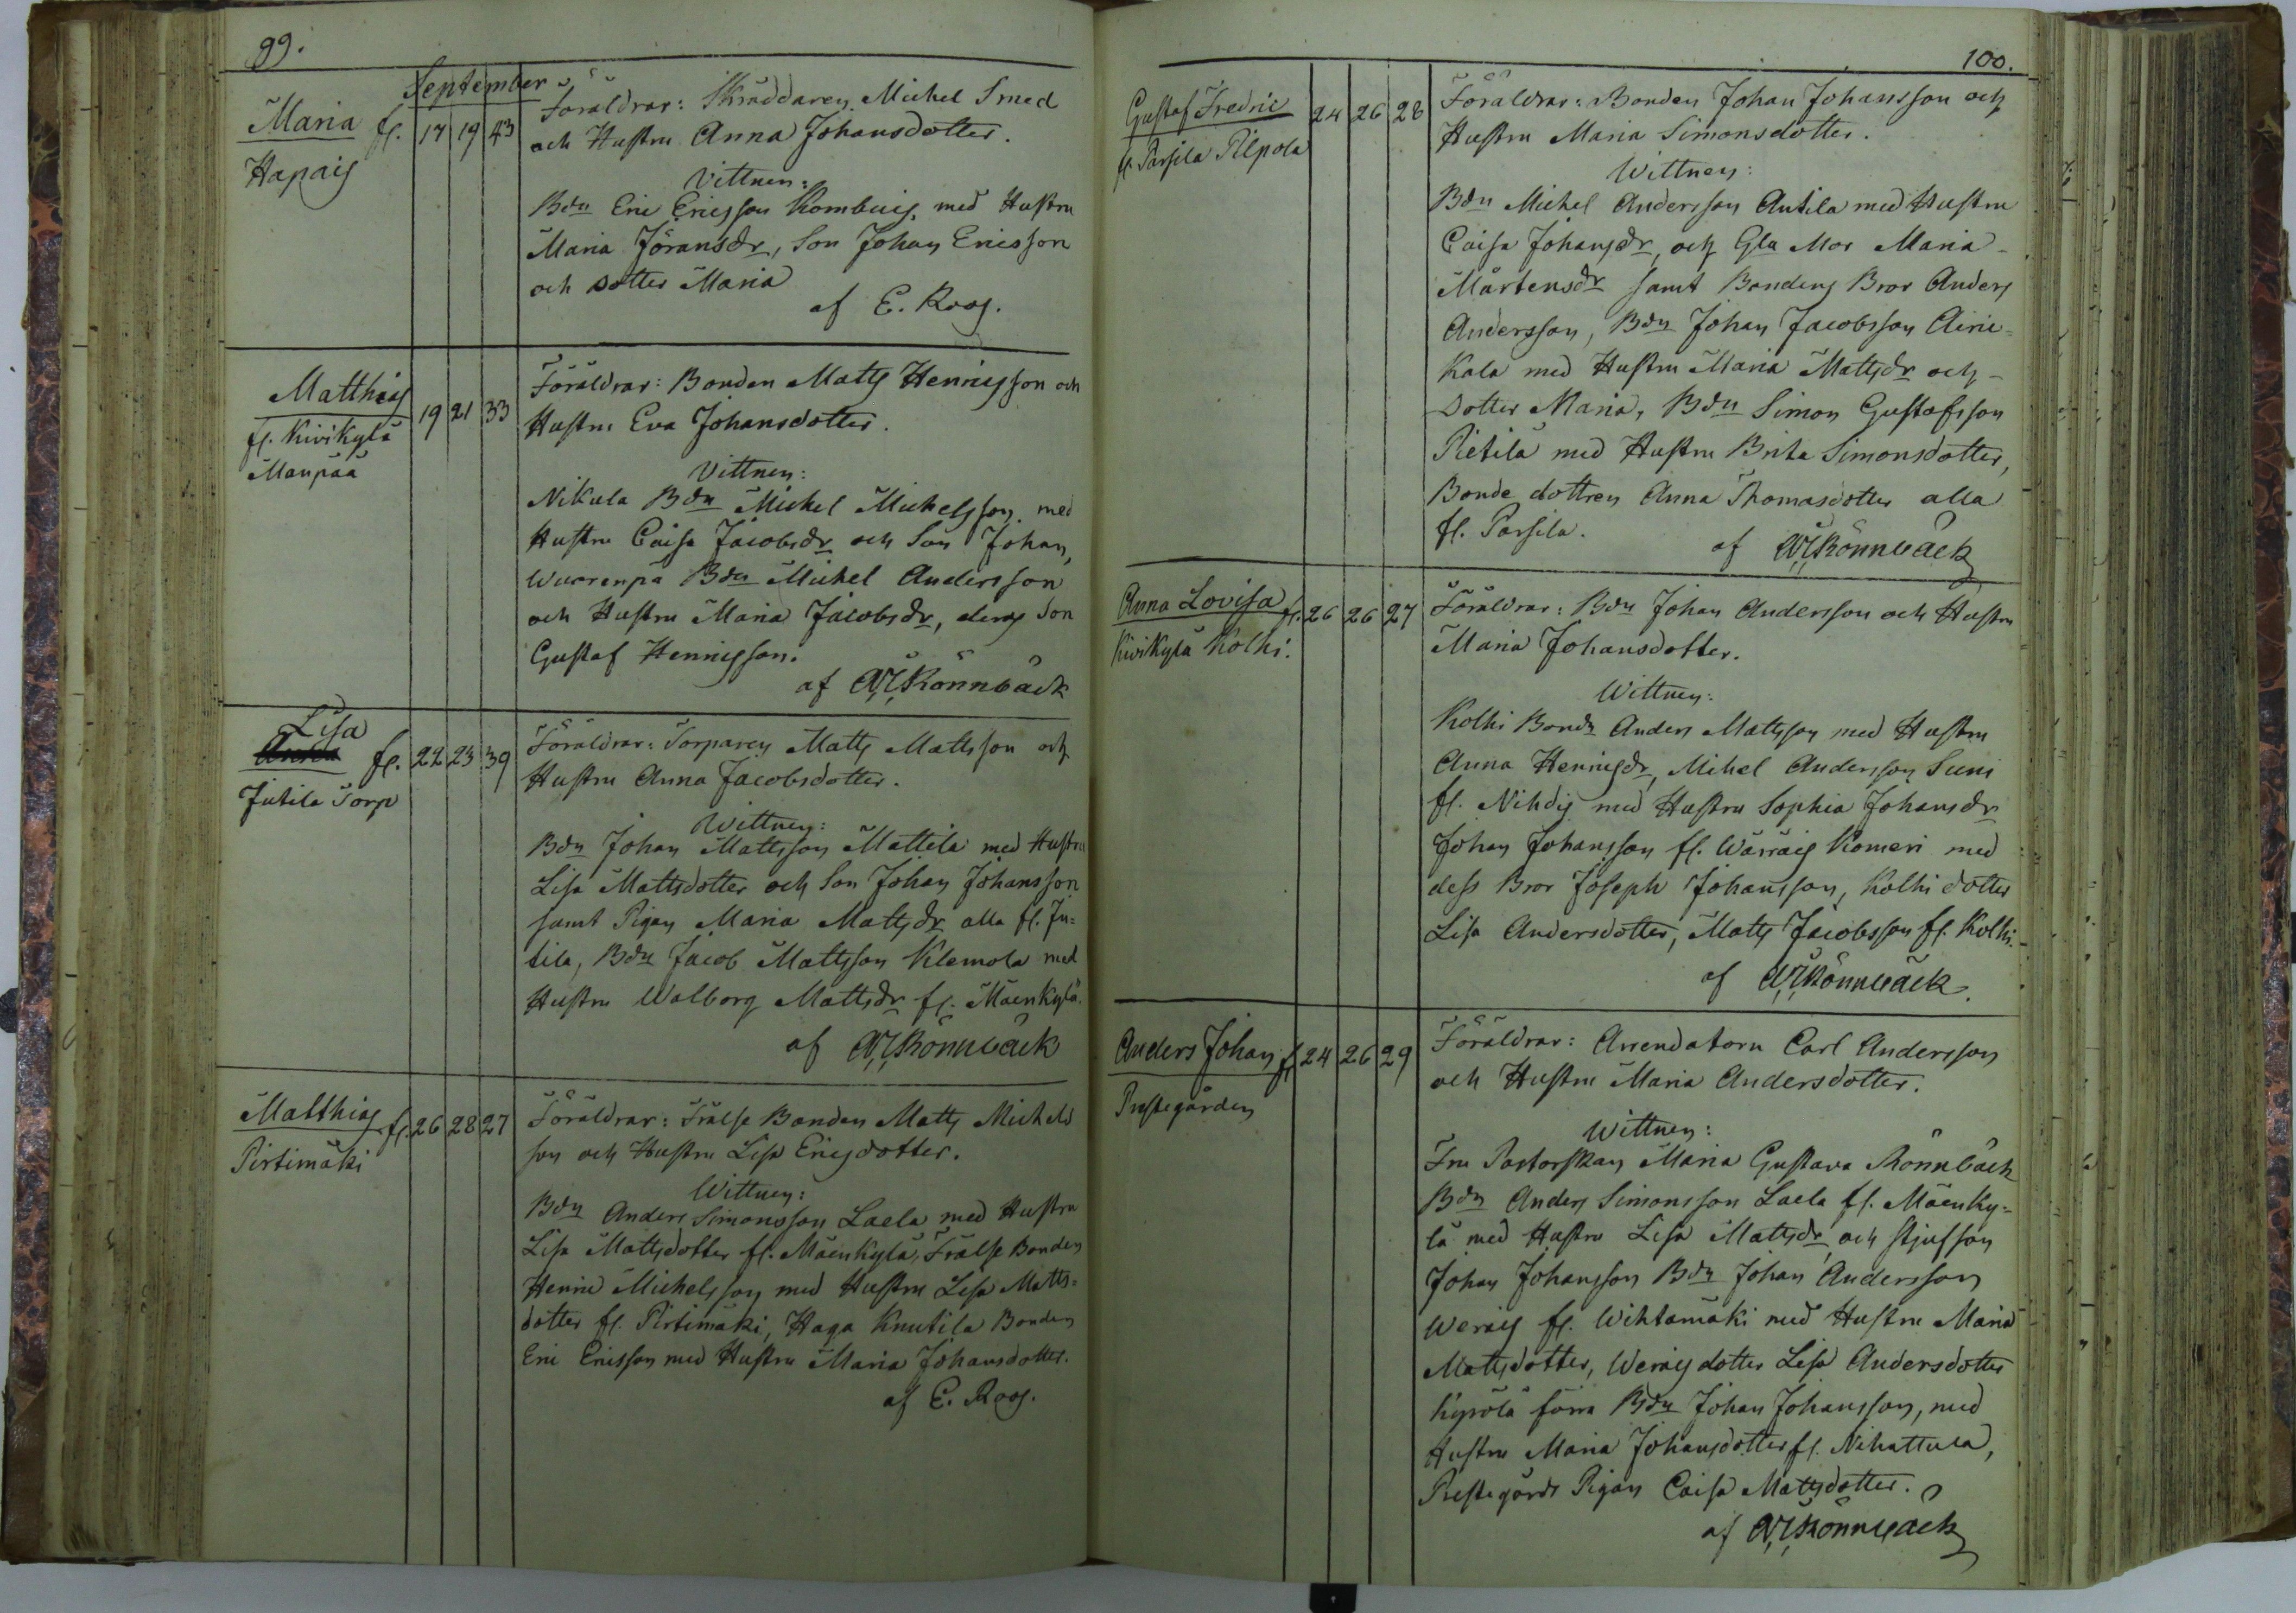 99.
September
Maria fr. 17 19 43
Hapais
Föräldrar: Skräddaren Michel Smed
och Hustru Anna Johansdotter.
Vittnen:
Bdn Eric Ericsson Kombuis, med Hustru
Maria Jöransdr, Son Johan Ericsson
och dotter Maria
af E. Roos.
Matthias 19 21 33
fr. Kivikylä
Manpää
Föräldrar: Bonden Matts Henricsson och
Hustru Eva Johansdotter.
Vittnen:
Nikula Bdn Michel Michelsson med
Hustru Caisa Jacobsdr och Son Johan,
Wuorenpä Bdn Michel Andersson
och Hustru Maria Jacobsdr, deras Son
Gustaf Henricsson.
af Rönnbäck
Lisa
fr. 22 23 39
Jutila Torp
Föräldrar: Torparen Matts Mattsson och
Hustru Anna Jacobsdotter.
Wittnen:
Bdn Johan Mattsson Mattila med Hustru
Lisa Mattsdotter och Son Johan Johansson
samt Pigan Maria Mattsdr alla fr. Ju=
tila, Bdn Jacob Mattsson Klemola med
Hustru Walborg Mattsdr fr. Mäenkylä.
af Rönnbäck
Matthias fr. 26 28 27
Pirtimäki
Föräldrar: Frälse Bonden Matts Michels
son och Hustru Lisa Ericsdotter.
Wittnen:
Bdn Anders Simonsson Laela med Hustru
Lisa Mattsdotter fr. Mäenkylä, Frälse Bonden
Henric Michelsson med Hustru Lisa Matts=
dotter fr. Pirtimäki, Haga Knutila Bonden
Eric Ericsson med Hustru Maria Johansdotter.
af E. Roos.
100.
Gustaf Fredric 24 26 28
fr. Parsila Pilpola
Föräldrar: Bonden Johan Johansson och
Hustru Maria Simonsdotter.
Wittnen:
Bdn Michel Andersson Antila med Hustru
Caisa Johansdr, och Gla Mor Maria
Mårtensdr samt Bondens Bror Anders
Andersson, Bdn Johan Jacobsson Airic=
kala med Hustru Maria Mattsdr och
dotter Maria, Bdn Simon Gustafsson
Pietilä med Hustru Brita Simonsdotter,
Bonde dottren Anna Thomasdotter alla
fr. Parsila.
af Rönnbäck
Anna Lovisa fr. 26 26 27
Kivikylä Kolhi.
Föräldrar: Bdn Johan Andersson och Hustru
Maria Johansdotter.
Wittnen:
Kolhi Bondn Anders Mattsson med Hustru
Anna Henricsdr, Mihel Andersson Suni
fr. Nihdis med Hustru Sophia Johansdr
Johan Johansson fr. Wäräis Komeri med
dess Bror Joseph Johansson, Kolhi dotter
Lisa Andersdotter, Matts Jacobsson fr. Kolhi.
af Rönnbäck.
Anders Johan fr 24 26 29
Prestegården
Föräldrar: Arrendatorn Carl Andersson
och Hustru Maria Andersdotter.
Wittnen:
Fru Pastorskan Maria Gustava Rönnbäck
Bdn Anders Simonsson Laela fr. Mäenky=
lä med Hustru Lisa Mattsdr och Stjufson
Johan Johansson Bdn Johan Andersson
Weräis fr. Wihtamäki med Hustru Maria
Mattsdotter, Weräis dotter Lisa Andersdotter
Kyrölä förra Bdn Johan Johansson, med
Hustru Maria Johansdotter fr. Nihattula,
Prestegårds Pigan Caisa Mattsdotter.
af Rönnbäck